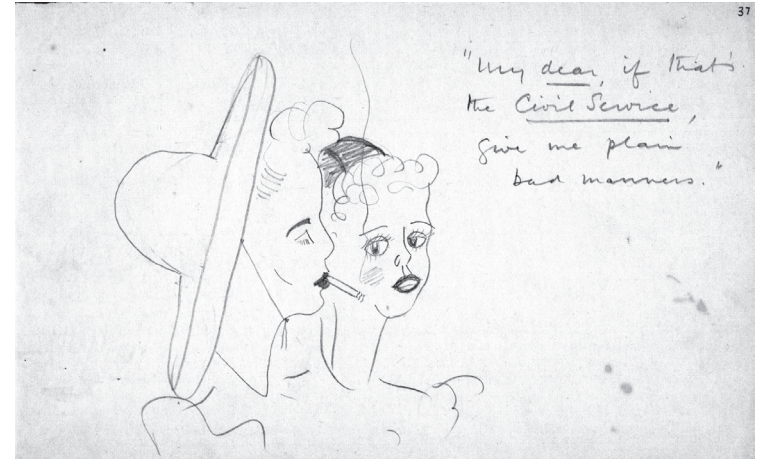 37
"My dear, if that's
the Civil Service,
give me plain
bad manners."